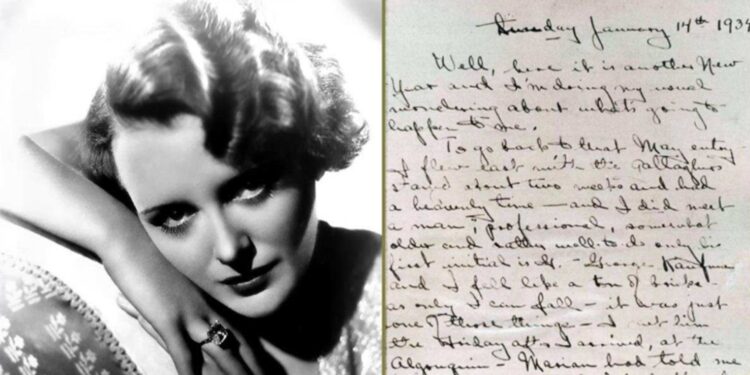 Tuesday January 14th 193
Well, here it is another New
Year and I'm doing my usual
wondering about what's going to
happen to me.
To go back to that May entry -
I flew east with the Gallaghers
stayed about two weeks and had
a heavenly time - and I did meet
a man, professional, somewhat
older and rather well-to-do only his
first initial is G. - George Kaufman
and I fell like a ton of bricks
as only I can fall - it was just
one of those things - I met him
the Friday after I arrived, at the
Algonquin - Marian had told me